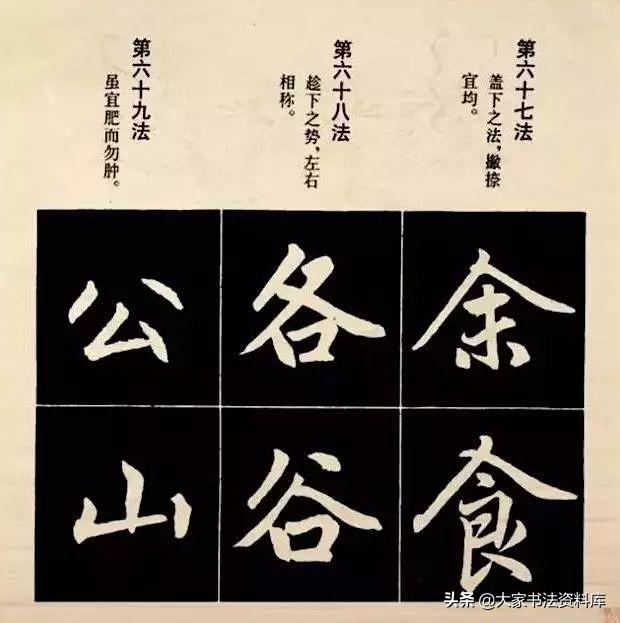 第六十七法
盖下之法，撇捺
宜均。
第六十八法
趁下之势，左右
相称。
第六十九法
虽宜肥而勿肿。
余
食
各
谷
公
山
头条 @大家书法资料库